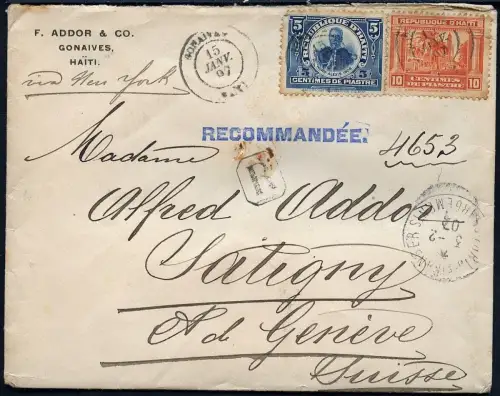 F. ADDOR & CO.
GONAIVES,
HAÏTI.
via New York
GONAIVES
15
JANV.
07
5 REPUBLIQUE D'HAITI 5
5 5
CENTIMES DE PIASTRE
REPUBLIQUE D'HAITI
10 CENTIMES 10
DE PIASTRE
RECOMMANDÉE.
4653
R
Madame
Alfred Addor
Satigny
Ad Genève
Suisse
3-2
07